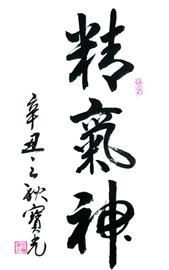 精氣神
辛丑之秋寶光